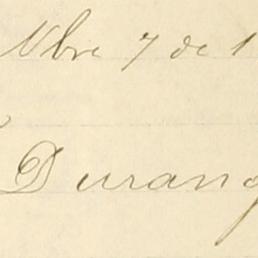 Nbre 7 de 1
Durang